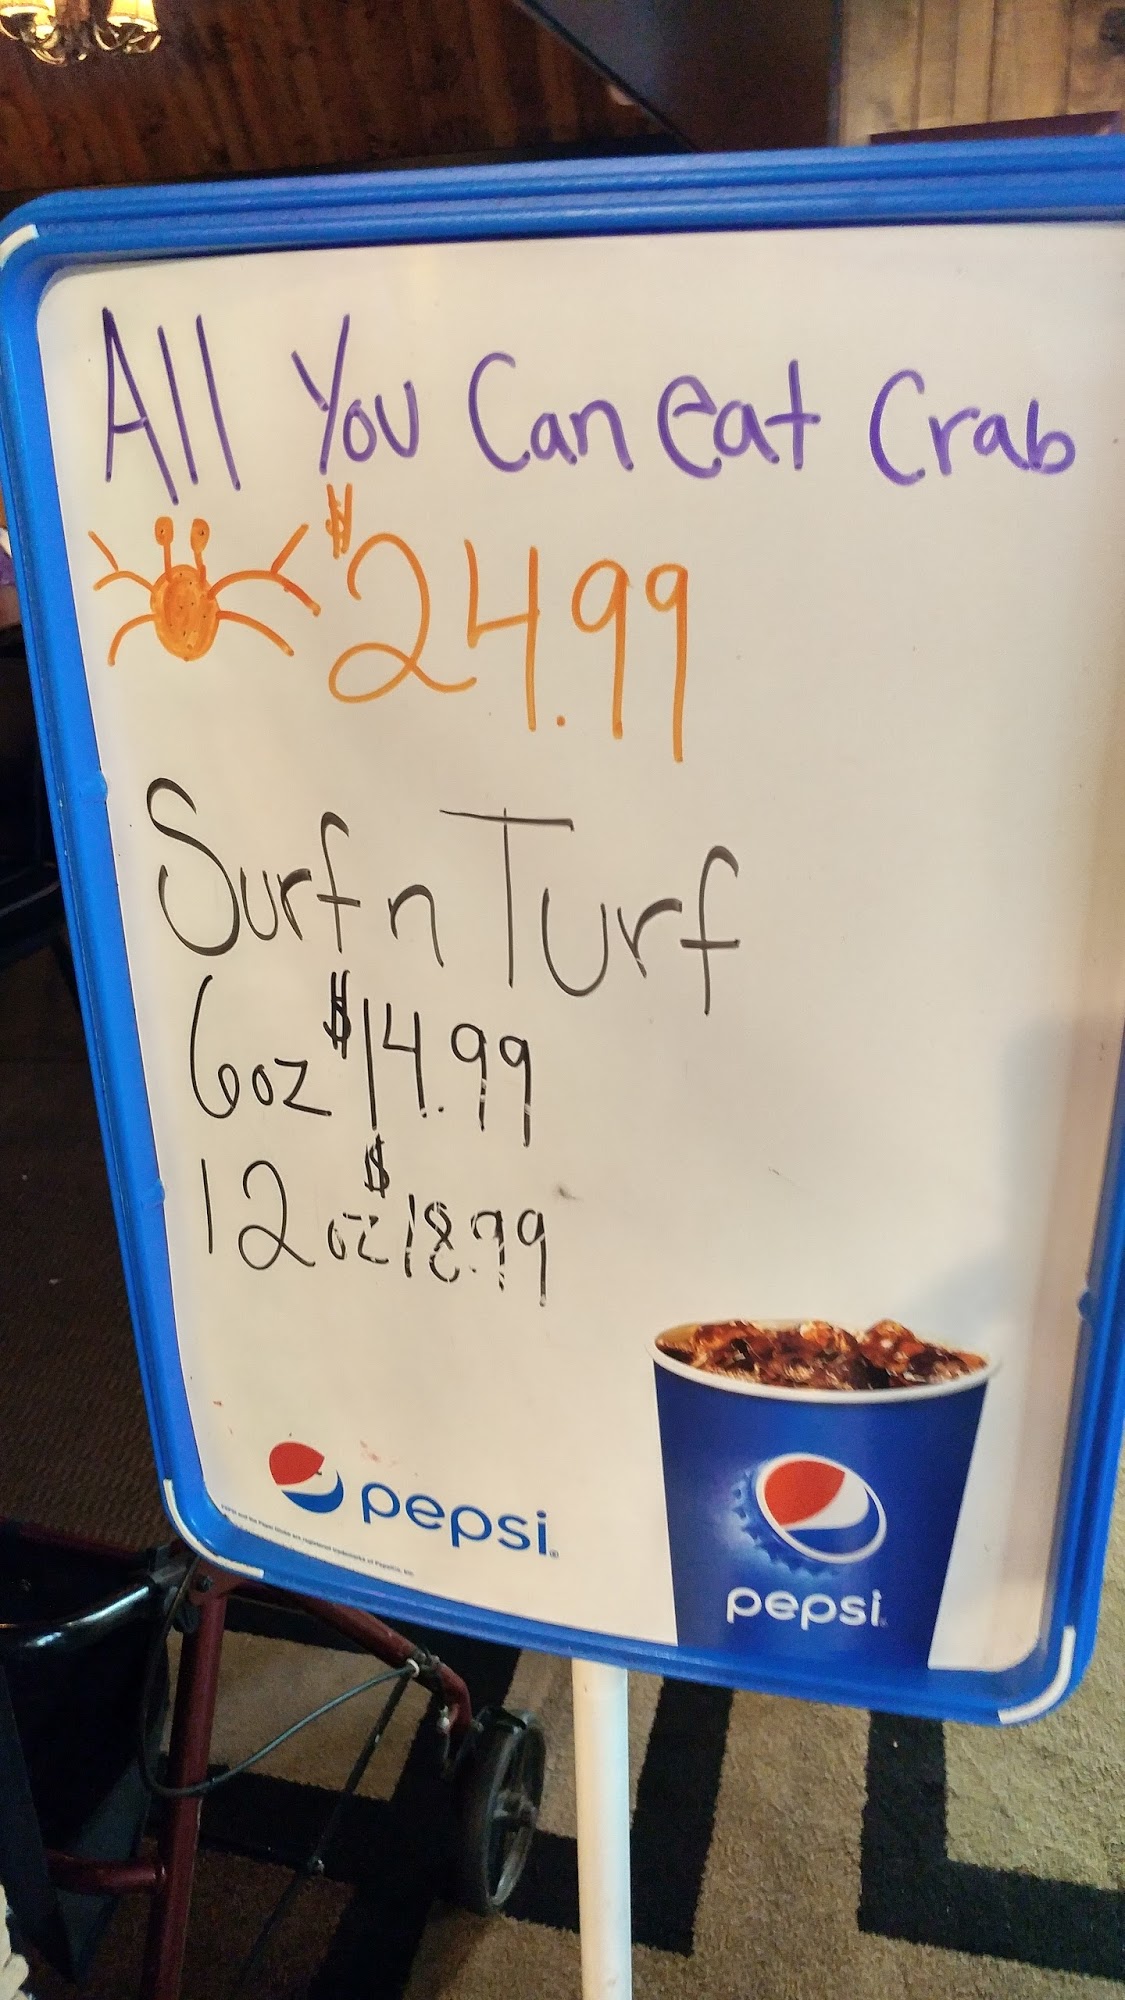 All You Can eat Crab
$24.99
Surf n Turf
6oz $14.99
12 oz $18.99
pepsi
pepsi